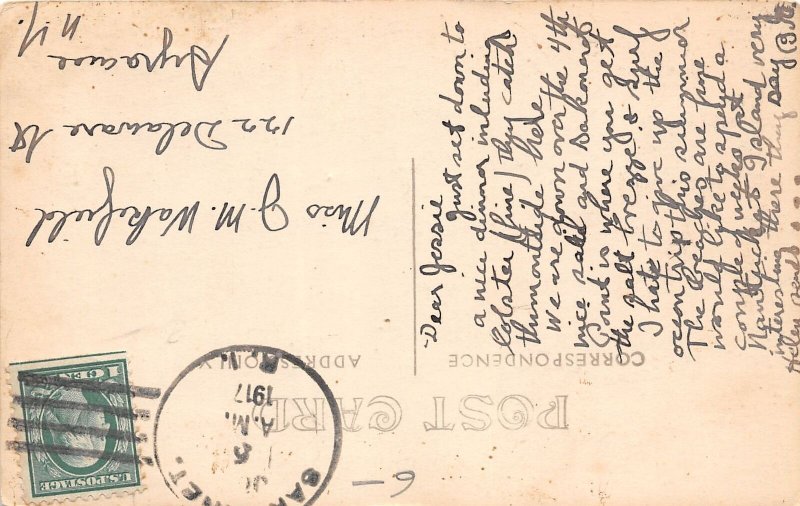 Dear Jessie
Just set down to
a nice dinner including
lobster (fine) they catch
them outside here
we are down over the 4th
nice sail and Sakonnet
Point is where you get
the salt breeze & surf
I hate to give up the
ocean trip this summer
The beaches are fine
would like to spend a
couple weeks at
Nantucket Island very
interesting there they say B.M.
Helen sends
Miss J. M. Wakefield
122 Delaware St
Syracuse
N.Y.
POST CARD
CORRESPONDENCE
ADDRESS ONLY
6-
5
A.M.
1917
R.I.
U.S. POSTAGE
1 CENT 1